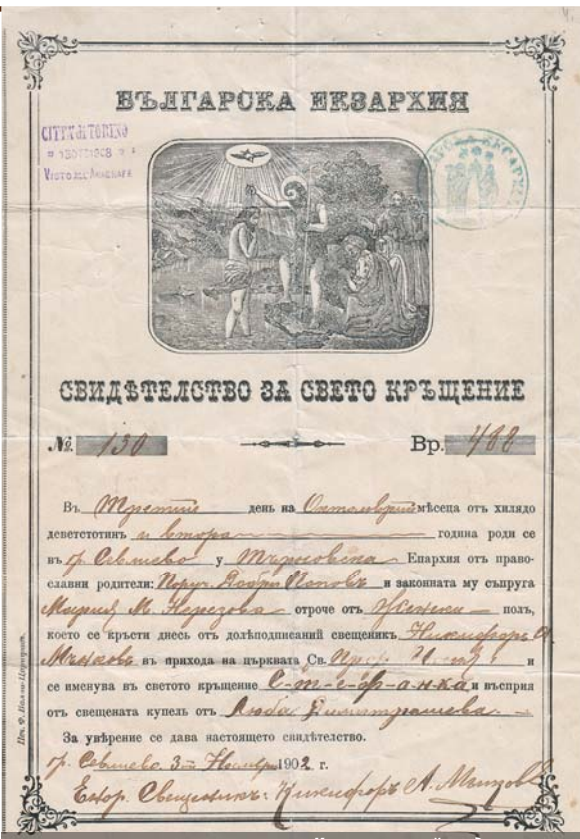 БЪЛГАРСКА ЕКЗАРХИЯ
CITTÀ DI TORINO
VISTO ALL'ANAGRAFE
СВИДѢТЕЛСТВО ЗА СВЕТО КРЪЩЕНИЕ
№ 130 Вр. 488
Въ Третий день на Октомврий мѣсеца отъ хилядо
деветстотинъ и втора година роди се
въ гр. Севлиево у Търновска Епархия отъ право-
славни родители: Поруч. Добри Поповъ и законната му съпруга
Мария М. Нерезова отроче отъ Женски полъ,
което се кръсти днесь отъ долѣподписаний свещеникъ Никифоръ А.
въ прихода на църквата Св. Прор. и
се именува въ светото кръщение С-т-е-ф-а-н-ка и въсприя
отъ свещената купель отъ Люба
За увѣрение се дава настоящето свидѣтелство.
гр. Севлиево 3-й Ноемврий 1902 г.
Енор. Свещеникъ: Никифоръ А.